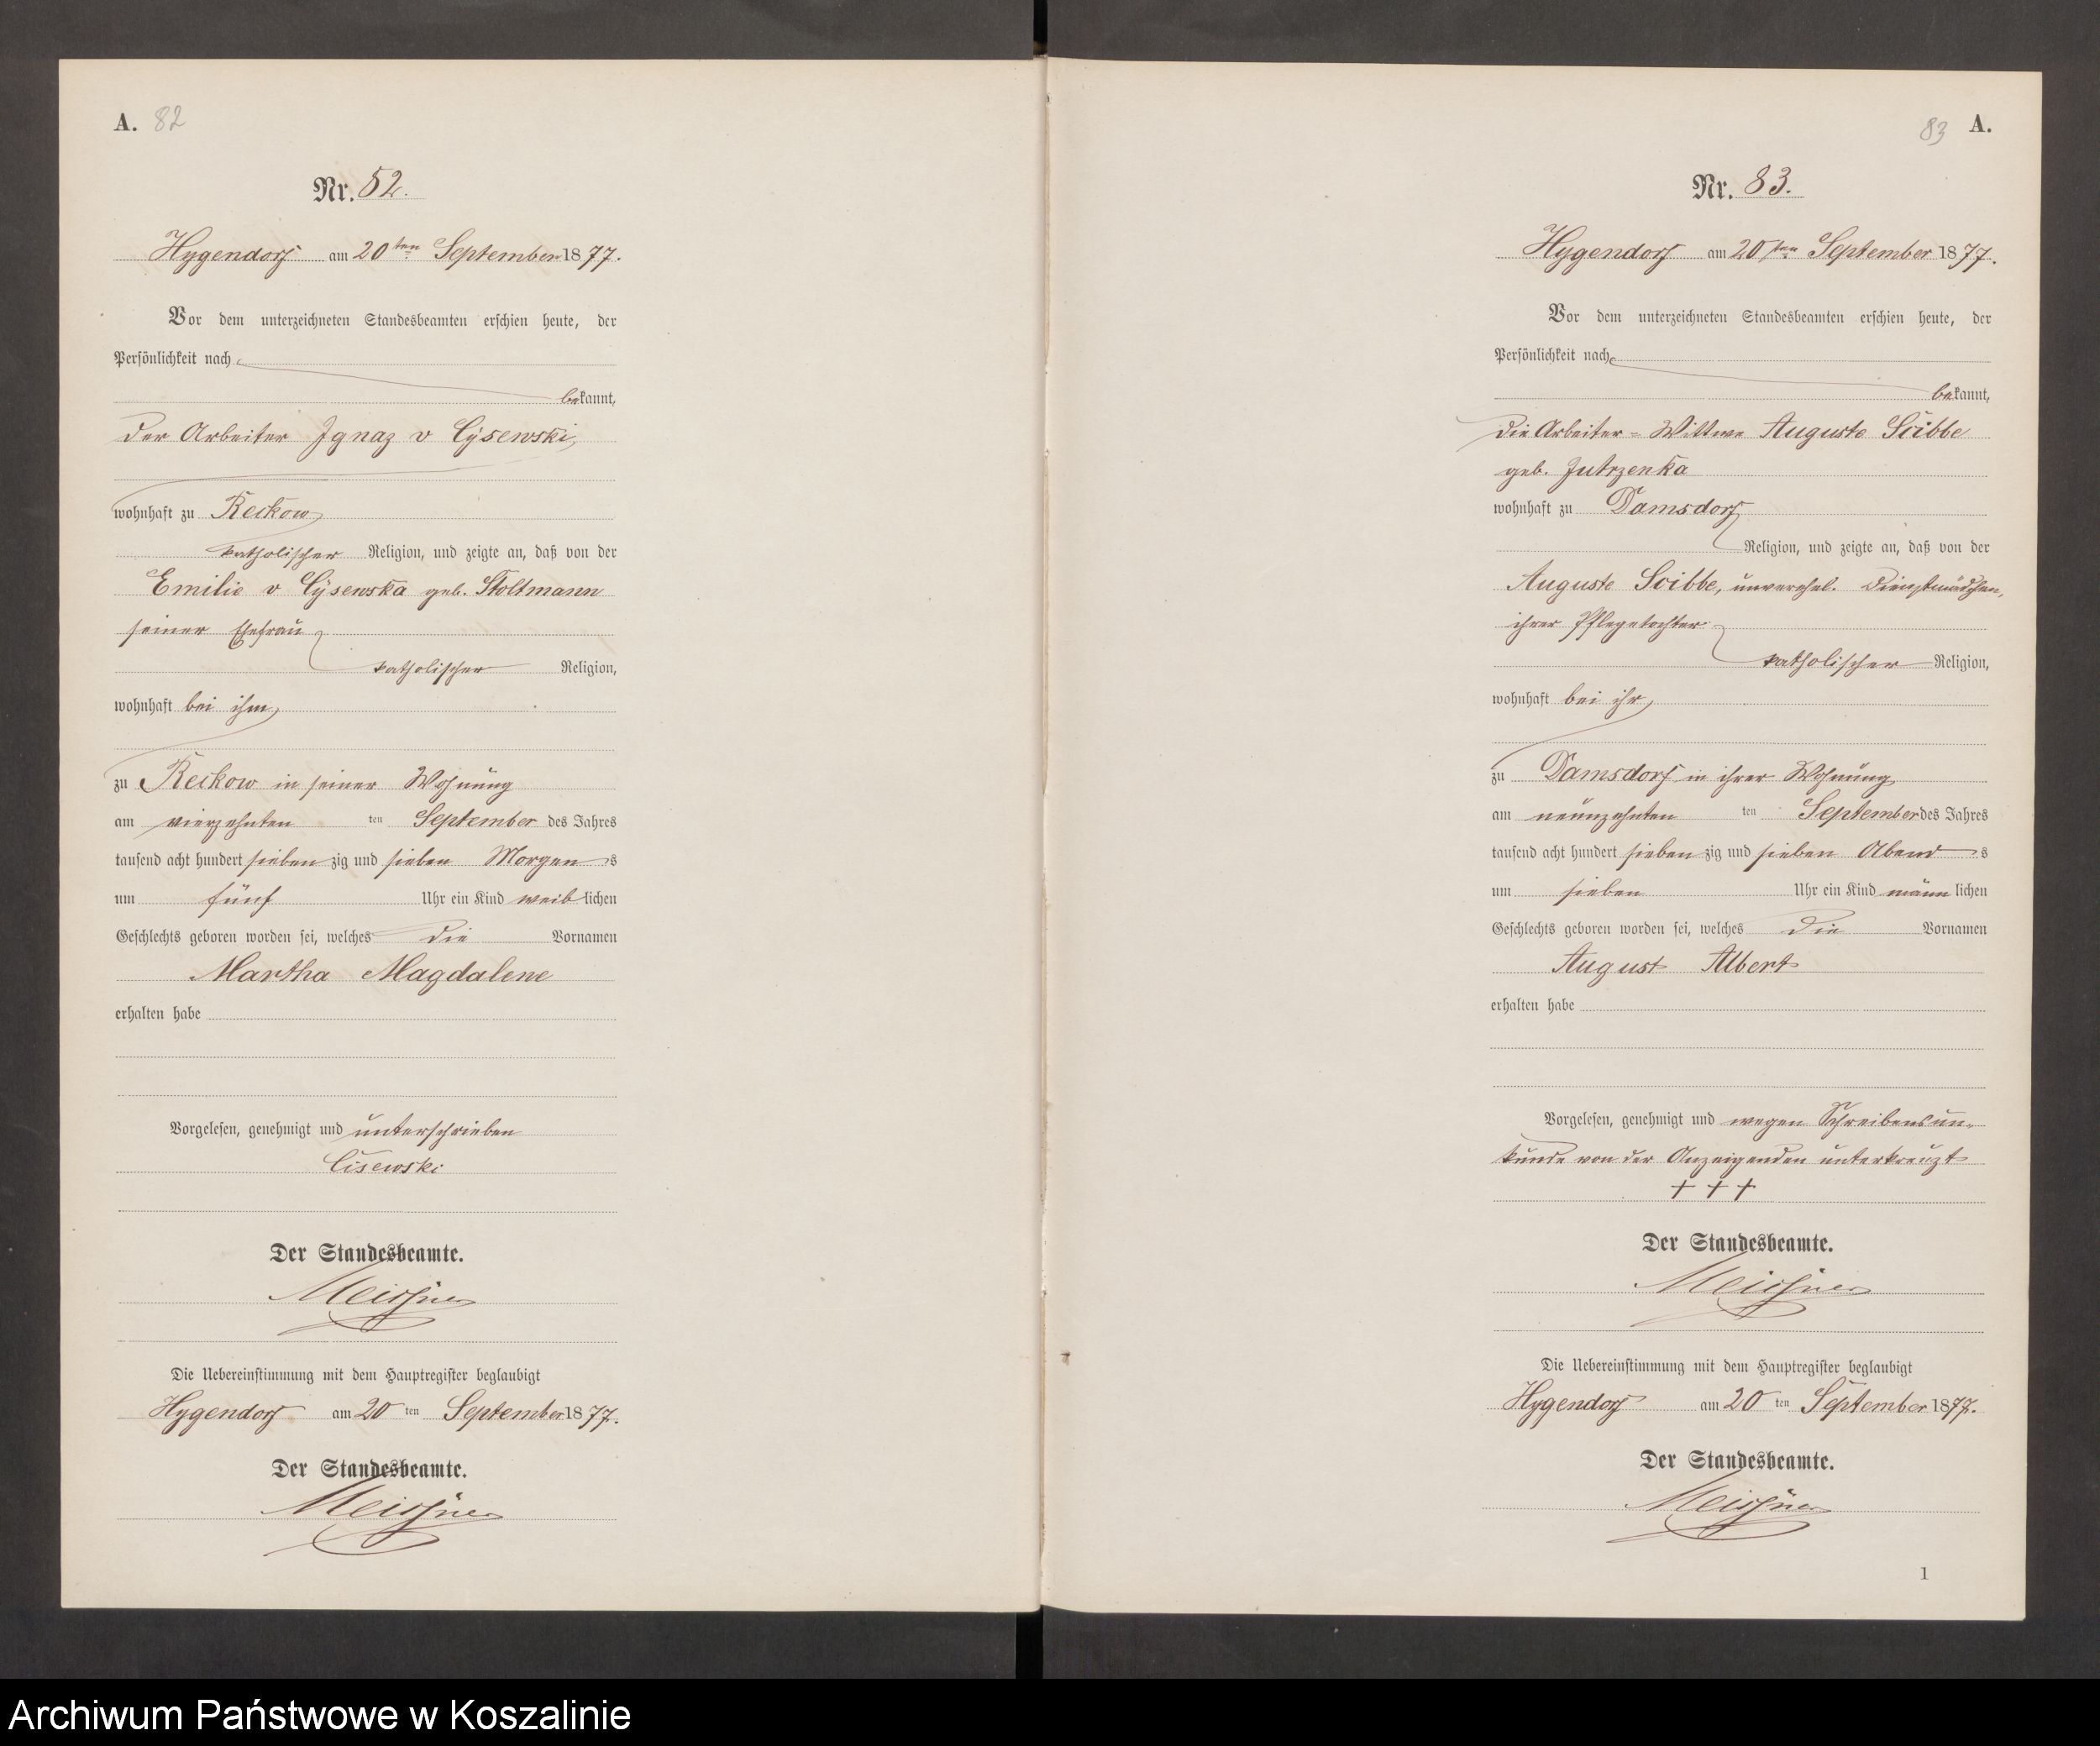 A. 82
Nr. 82.
Hygendorf am 20ten September 1877.
Vor dem unterzeichneten Standesbeamten erschien heute, der
Persönlichkeit nach
bekannt,
der Arbeiter Ignaz v Cÿsewski,
wohnhaft zu Reckow
katholischer Religion, und zeigte an, daß von der
Emilie v Cÿsewska geb. Stoltmann
seiner Ehefrau
katholischer Religion,
wohnhaft bei ihm,
zu Reckow in seiner Wohnung
am vierzehnten ten September des Jahres
tausend acht hundert siebenzig und sieben Morgens
um fünf Uhr ein Kind weiblichen
Geschlechts geboren worden sei, welches die Vornamen
Martha Magdalene
erhalten habe
Vorgelesen, genehmigt und unterschrieben
Cisewski
Der Standesbeamte.
Meissner
Die Uebereinstimmung mit dem Hauptregister beglaubigt
Hygendorf am 20 ten September 1877.
Der Standesbeamte.
Meissner
83 A.
Nr. 83.
Hygendorf am 20ten September 1877.
Vor dem unterzeichneten Standesbeamten erschien heute, der
Persönlichkeit nach
bekannt,
die Arbeiter-Wittwe Auguste Scibbe
geb. Jutrzenka
wohnhaft zu Damsdorf
Religion, und zeigte an, daß von der
Auguste Scibbe, unverehel. Dienstmädchen,
ihrer Pflegetochter
katholischer Religion,
wohnhaft bei ihr,
zu Damsdorf in ihrer Wohnung
am neunzehnten ten September des Jahres
tausend acht hundert siebenzig und sieben Abends
um sieben Uhr ein Kind männlichen
Geschlechts geboren worden sei, welches die Vornamen
August Albert
erhalten habe
Vorgelesen, genehmigt und wegen Schreibensun-
kunde von der Anzeigenden unterkreuzt
+ + +
Der Standesbeamte.
Meissner
Die Uebereinstimmung mit dem Hauptregister beglaubigt
Hygendorf am 20 ten September 1877.
Der Standesbeamte.
Meissner
1
Archiwum Państwowe w Koszalinie